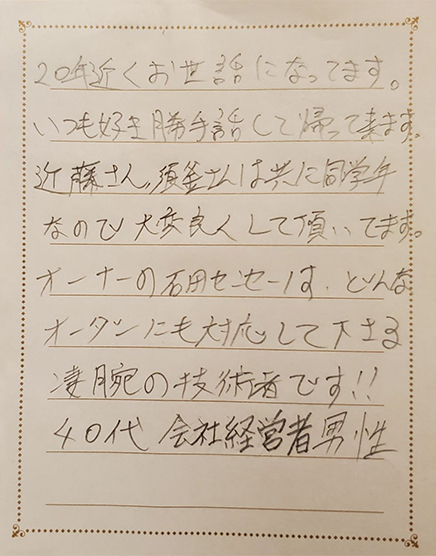 20年近くお世話になってます。
いつも好き勝手話して帰って来ます。
近藤さん、須釜さんは共に同学年
なので大変良くして頂いてます。
オーナーの石田センセーは、どんな
オーダーにも対応して下さる
凄腕の技術者です!!
40代 会社経営者男性